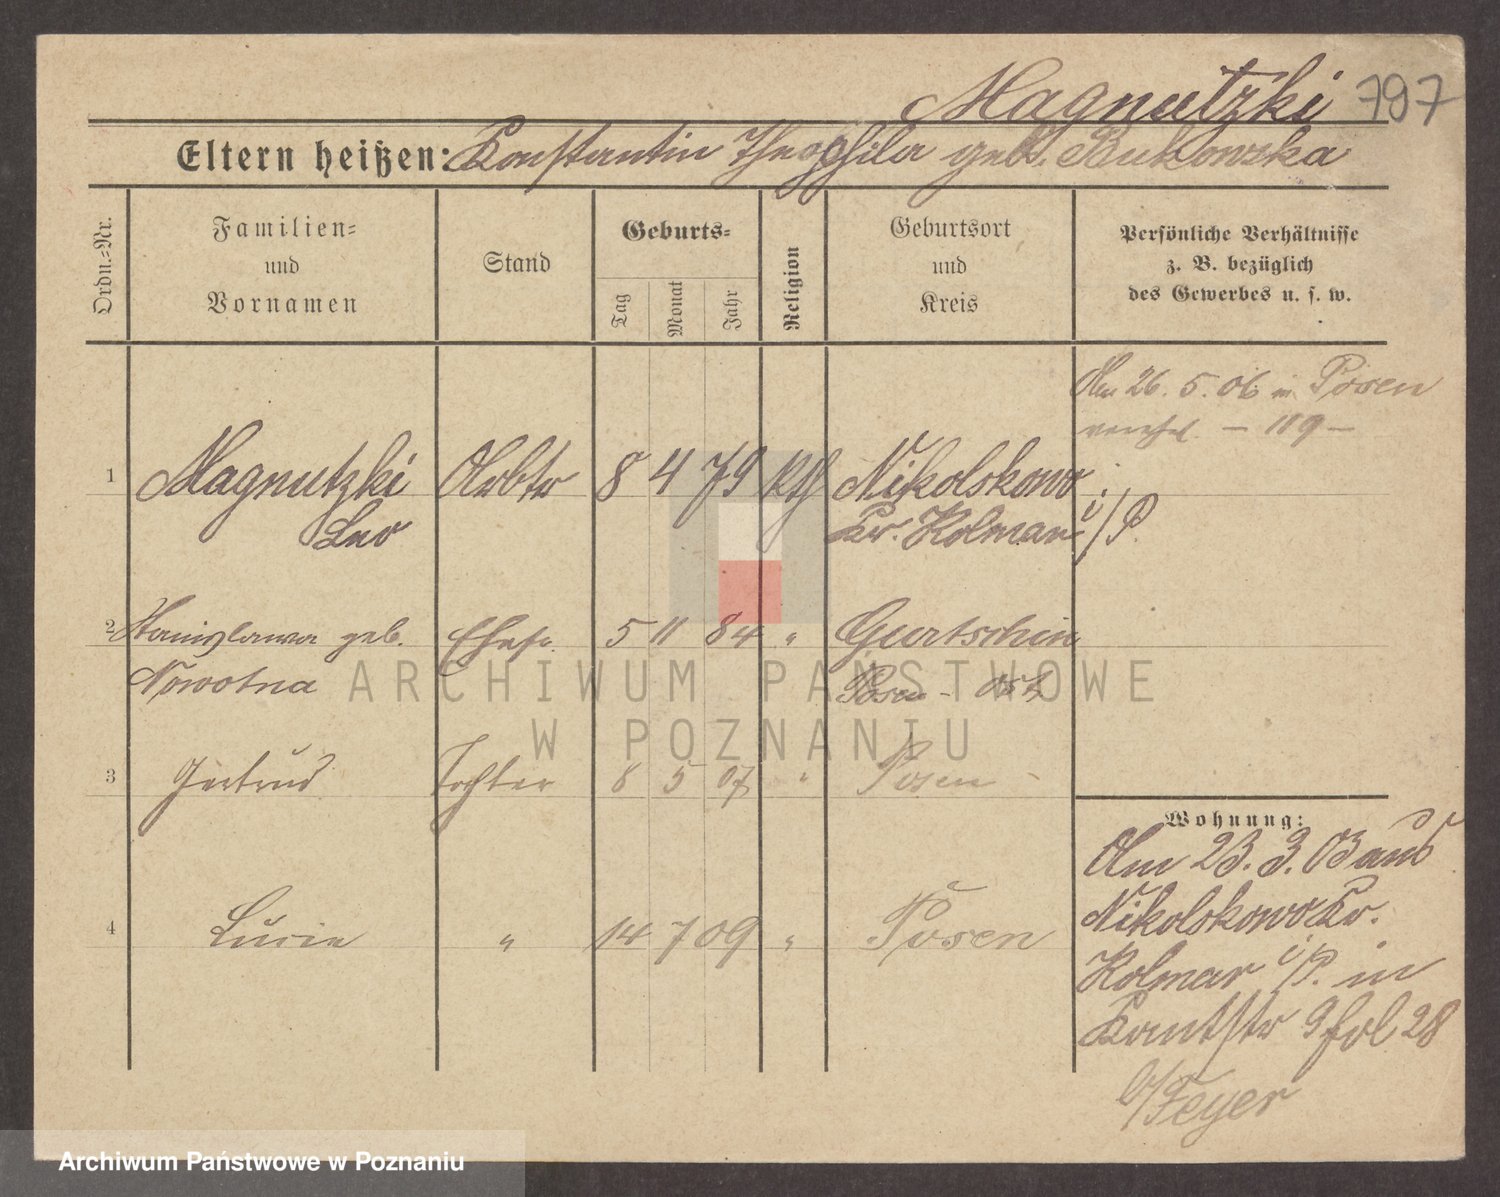 Magnutzki 797
Eltern heißen: Konstantin Theophila geb. Bukowska
Ordn.-Nr.
Familien-
und
Vornamen
Stand
Geburts-
Tag
Monat
Jahr
Religion
Geburtsort
und
Kreis
Persönliche Verhältnisse
z. B. bezüglich
des Gewerbes u. s. w.
Am 26. 5. 06 in Posen
verehel. – 119 –
1 Magnutzki Arbtr 8 4 79 kth Nikolskowo
Leo Kr. Kolmar i/P.
2 Stanislawa geb. Ehefr. 5 11 84 " Gurtschin
Nowotna Posen - Ost
3 Gertrud Tochter 8 5 07 " Posen
4 Lucie " 14 7 09 " Posen
Wohnung:
Am 23. 3. 03 aus
Nikolskowo Kr.
Kolmar i/P. in
Kantstr 9 fol 28
b/Feyer
ARCHIWUM PAŃSTWOWE
W POZNANIU
Archiwum Państwowe w Poznaniu